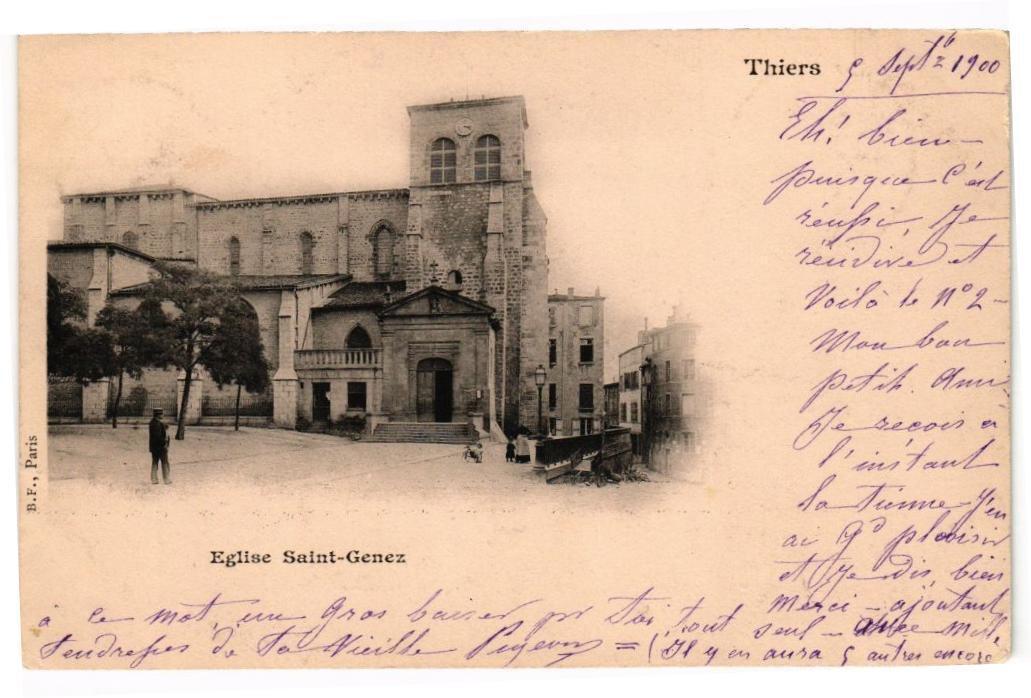 Thiers 5 Septbre 1900
Eh! bien -
puisque C'est
réussi, Je
récidive et
Voilà le N° 2 -
Mon bon
petit. Ami
Je reçois a
l'instant
la tienne J'en
ai Gd plaisir
et Je dis, bien
merci - ajoutant
à ce mot, un Gros baiser pr Toi, tout seul - avec mille
tendresses de Ta Vieille
= (Il y en aura 5 autres encore
Eglise Saint-Genez
B.F., Paris